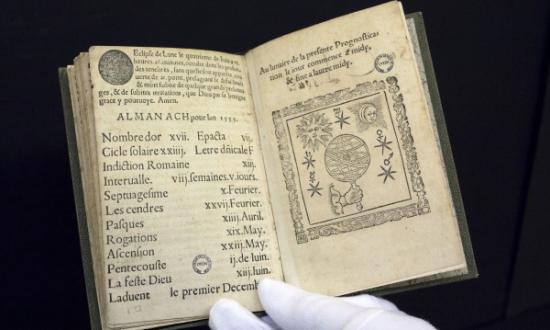 Eclipse de Lune le quatrieme de Iuin a
heures
des tenebres,
& mort subite de quelque grand personna
ges, & de subites mutations, que Dieu par sa benigne
grace y pouruoye. Amen.
ALMANACH pour lan 1555.
Nombre dor xvij. Epacta vij.
Cicle solaire xxiij. Letre dñicale F
Indiction Romaine xiij.
Interualle. viij. semaines v. iours.
Septuagesime x. Feurier.
Les cendres xxvij. Feurier.
Pasques xiiij. Auril.
Rogations xix. May.
Ascension xxiij. May.
Pentecouste ij. de Iuin.
La feste Dieu xiij. Iuin.
Laduent le premier Decemb
Au lunaire de la presente Prognostica
tion le iour commence a midy,
& fine a lautre midy.